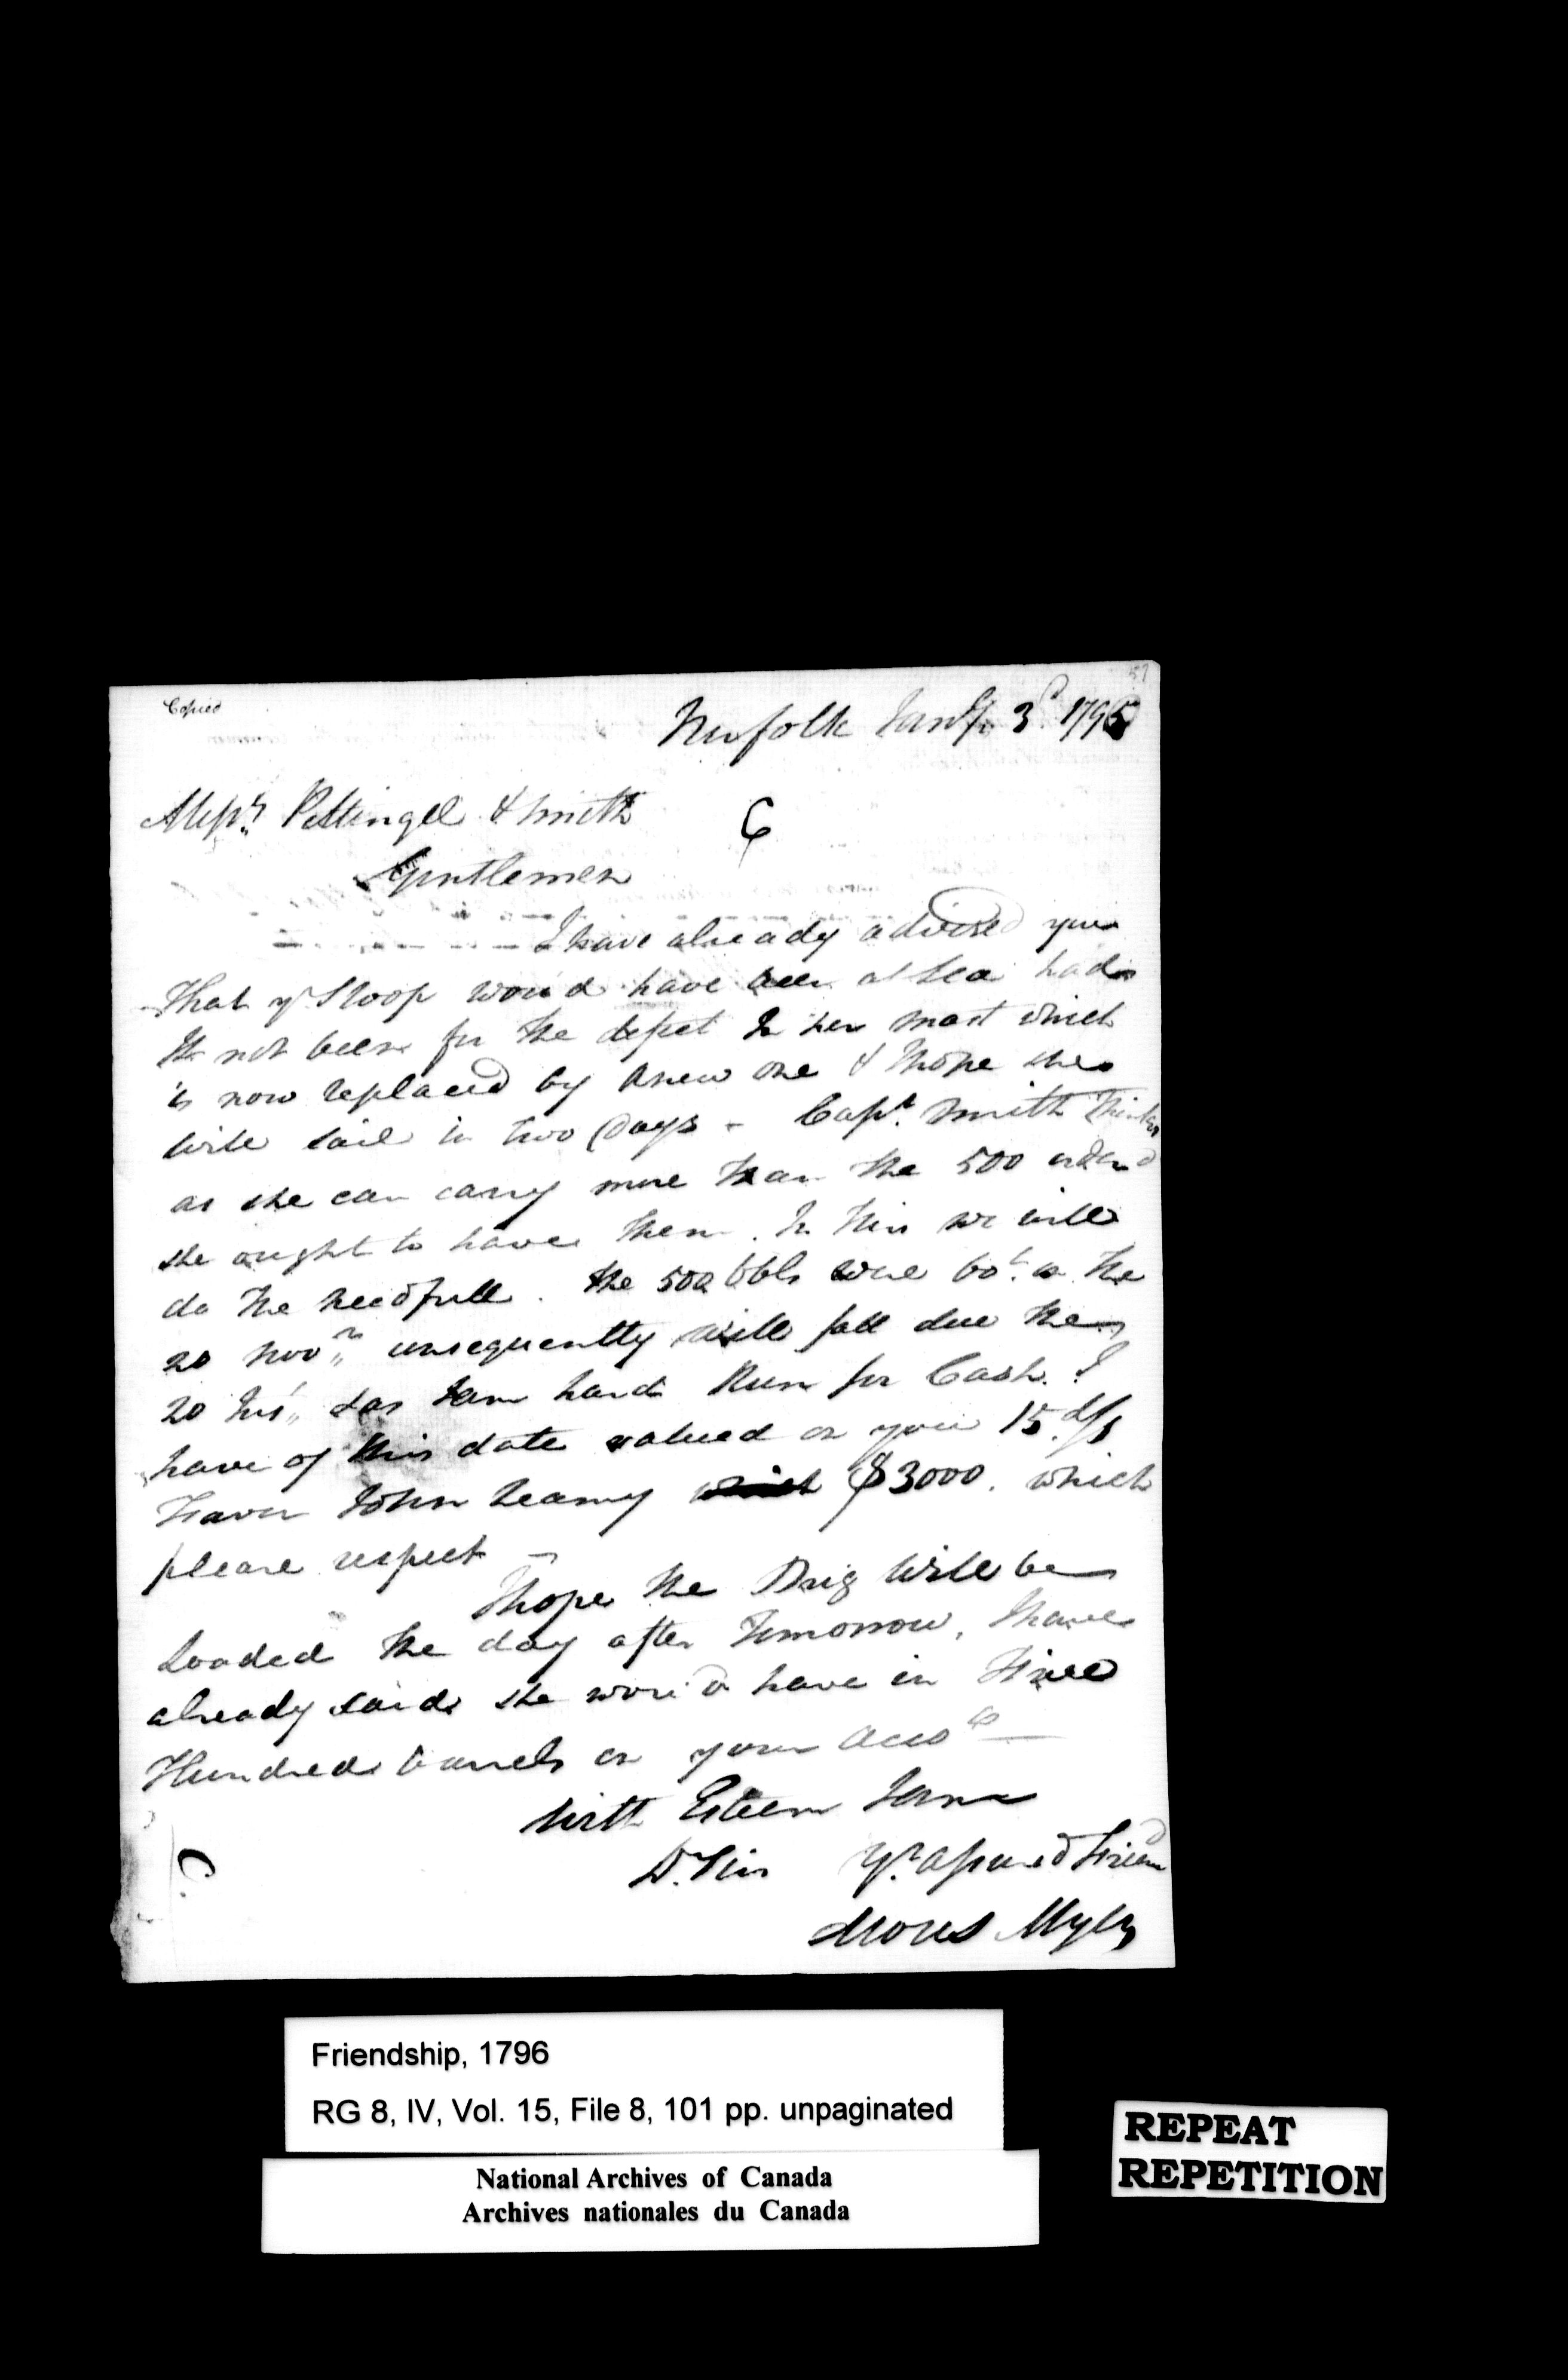 57
Copied
Norfolk Jany. 3d. 1796
Messrs. Pettingel & Smith
6
Gentlemen
I have already advised you
That yr Sloop wou'd have been at Sea had
It not been for the defect In her mast which
is now replaced by Anew one & Ihope she
will sail in two Days - Capt. Smith Thinks
as she can carry more than the 500 order'd
she ought to have Them. In This we will
do the needfull. the 500 bbls were bot. on The
20 Novr. consequently will fall due the
20 Inst. & as Iam hard Run for Cash. I
have of this date valued on you 15 d/s
Favor John Leamy $3000. which
please respect -
Ihope the Brig Will be
Loaded the day after Tomorrow, Ihave
already said she wou'd have in Five
Hundred barrels on your Acco
With Esteem Iam
Dr. Sir Yr. assured Friend
Moses Myers
Friendship, 1796
RG 8, IV, Vol. 15, File 8, 101 pp. unpaginated
National Archives of Canada
Archives nationales du Canada
REPEAT
REPETITION